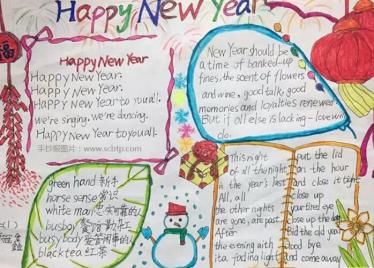 Happy New Year
福
Happy New Year
Happy New Year.
Happy New Year.
Happy New Year to you all.
we're singing, we're dancing.
Happy New Year to you all.
手抄报图片：www.scbtp.com
New Year should be
a time of banked-up
fines, the scent of flowers
and wine, good talk, good
memories and loyalties renewed.
But if all else is lacking - love will
do.
green hand 新手
horse sense 常识
white man 忠实可靠的人
busboy 餐馆勤杂工
busybody 爱管闲事的人
black tea 红茶
This night
of all the nights
in the year's last
All, all
the other nights
are gone, are past
After
the evening with
its fading light
put the lid
on the hour
and close it tight
close up
your tired eye
close up the day
Bid the old year
Good bye
and come away